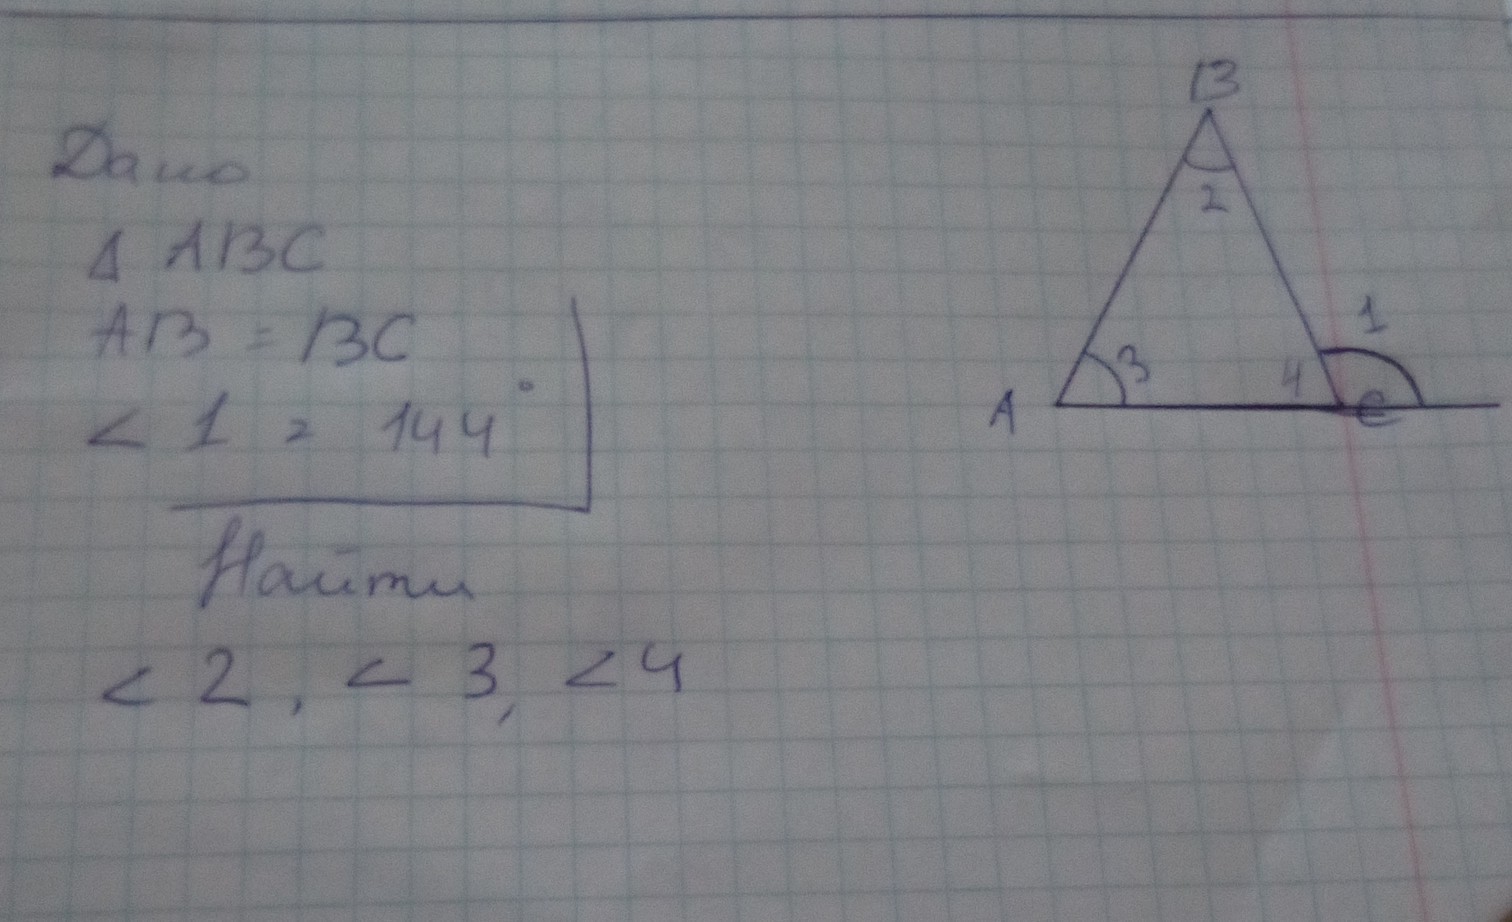 Дано
Δ ABC
AB = BC
< 1 = 144°
Найти
< 2, < 3, < 4
B
2
1
3
4
A
C